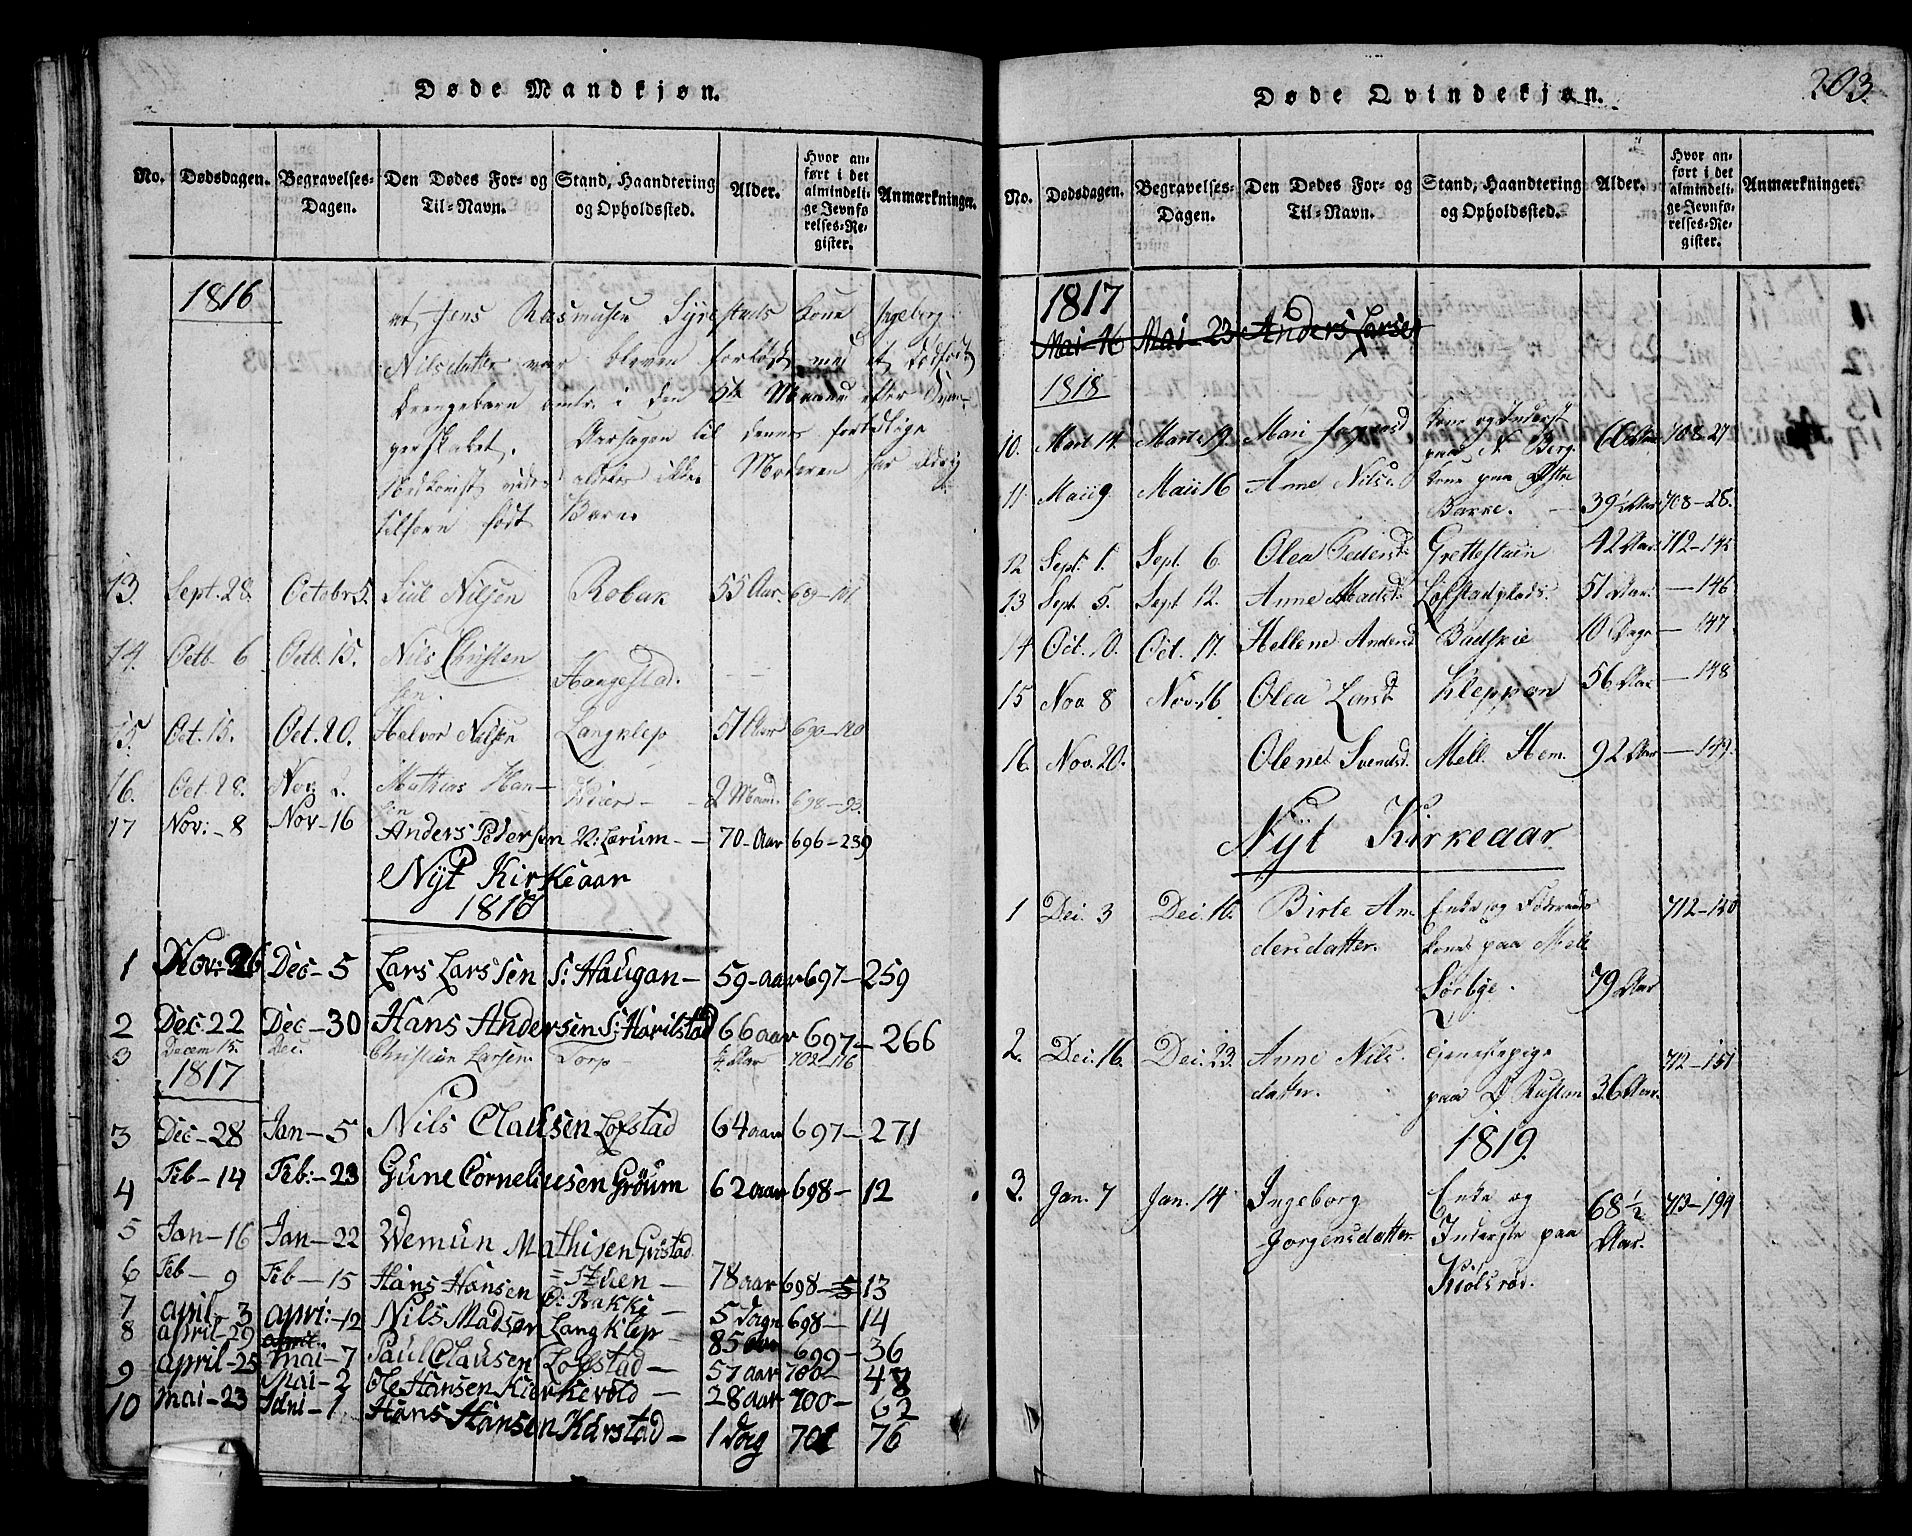 Døde Mandkjøn.
No.
Dødsdagen.
Begravelses-
Dagen.
Den Dødes For- og
Til-Navn.
Stand, Haandtering
og Opholdssted.
Alder.
Hvor an-
ført i det
almindeli-
ge Jevnfø-
relses-Re-
gister.
Anmærkninger.
1816
at Jens Rasmusen Syrestads kone Ingeborg
Nilsdatter var bleven forløst med et dødfødt
Drengebarn i den 5te Maaned efter Svan-
gerskabet. Aarsagen til dennes fortidlige
Nedkomst vides ikke. Moderen har aldrig
tilforn født Børn.
13. Sept. 28. Octobr 5. Siul Nilsen Robak 55 Aar.
14. Octb. 6 Octb. 15. Nils Christen
sen. Haugestad.
15. Oct. 15. Oct. 20. Halvor Nilsen Langklep 51 Aar 690-120
16. Oct. 28. Nov. 2. Mathias Han-
sen 2 Maand. 698-93.
17 Nov:-8 Nov-16 Anders Pedersen N: Lærum- 70-Aar 696-239
Nyt Kirkeaar
1816
1 Nov: 26 Dec-5 Lars Larssen S: Haugan- 59-aar 697-259
2 Dec: 22 Dec-30 Hans Andersen S: Harilstad 66 aar 697-266
3 Decem 15. Dec. Christian Larsen. Torp 702-116
1817
3 Dec-28 Jan-5 Nils Clausen Lofstad 64 aar 697-271
4 Feb-14 Feb:-23 Gune Corneliusen Gröum 62 aar 698-12
5 Jan-16 Jan-22 Wemun Mathisen Gristad
=Stuen- 78 aar 698-13
6 Feb-9 Feb-15 Hans Hansen Ö: Bakke- 5 dage 698-14
7 april-3 apri:-12 Nils Madsen Langklep- 85 aar 699-36
8 april-29 mai-7 Paul Clausen Lofstad- 57 aar 700-48
9 april-25 Mai-2 Ole Hansen Kierkevold- 28 aar 700-62
10 mai-23 Juni-1 Hans Hansen Karstad- 1 dag 701 76
203.
Døde Qvindekjøn.
No.
Dødsdagen.
Begravelses-
Dagen.
Den Dødes For- og
Til-Navn.
Stand, Haandtering
og Opholdssted.
Alder.
Hvor an-
ført i det
almindeli-
ge Jevnfø-
relses-Re-
gister.
Anmærkninger.
1817
Mai-16 Mai-23 Anders Larsen
1818
10. Mart 14. Marts 19. Mari Kone og Inderst
paa N Berg. 60 Aar 708-27
11. Maii 9. Maii 16 Anne Nilsd. Kone paa Østre
Bakke. 39½ Aar 708-28.
12 Sept. 1. Sept. 6. Olea Pedersd. Grettestuen 42 Aar. 712-145
13 Sept. 5. Sept 12. Anne Madsd. Lofstadplads. 51 Aar. -146
14 Oct. 10. Oct. 17. Hellene Andersd. Budskie 10 Dage -147.
15 Nov 8 Nov. 16 Olea Larsd. Kleppen 56 Aar -148
16. Nov. 20. Olene Svendsd. Mell. Hem. 92 Aar -149.
Nyt Kirkeaar
1 Dec. 3 Dec. 10. Birte An-
dersdatter. Enke og Føderaads
kone paa Mell
Sørbye. 79 Aar 712-150
2. Dec. 16. Dec. 23. Anne Nils-
datter. Tjenestepige
paa Ø Rustan 36 Aar. 712-151
1819.
3. Jan. 7 Jan. 14 Ingeborg
Jorgensdatter Enke og
Inderste paa
Kiolsrød. 68½
Aar. 713-194